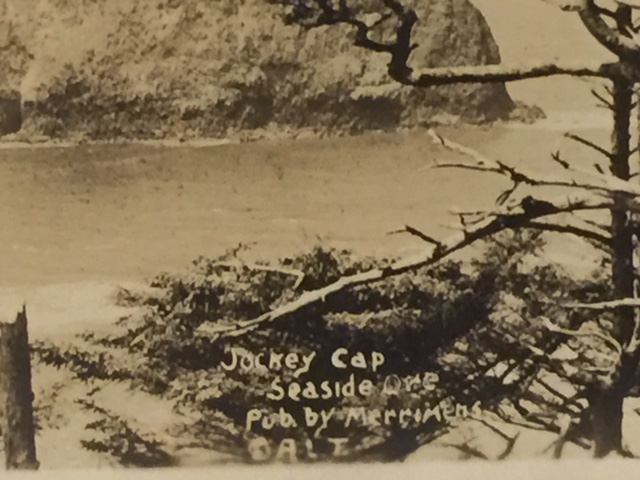 Jockey Cap
Seaside Ore
Pub. by Merrimens